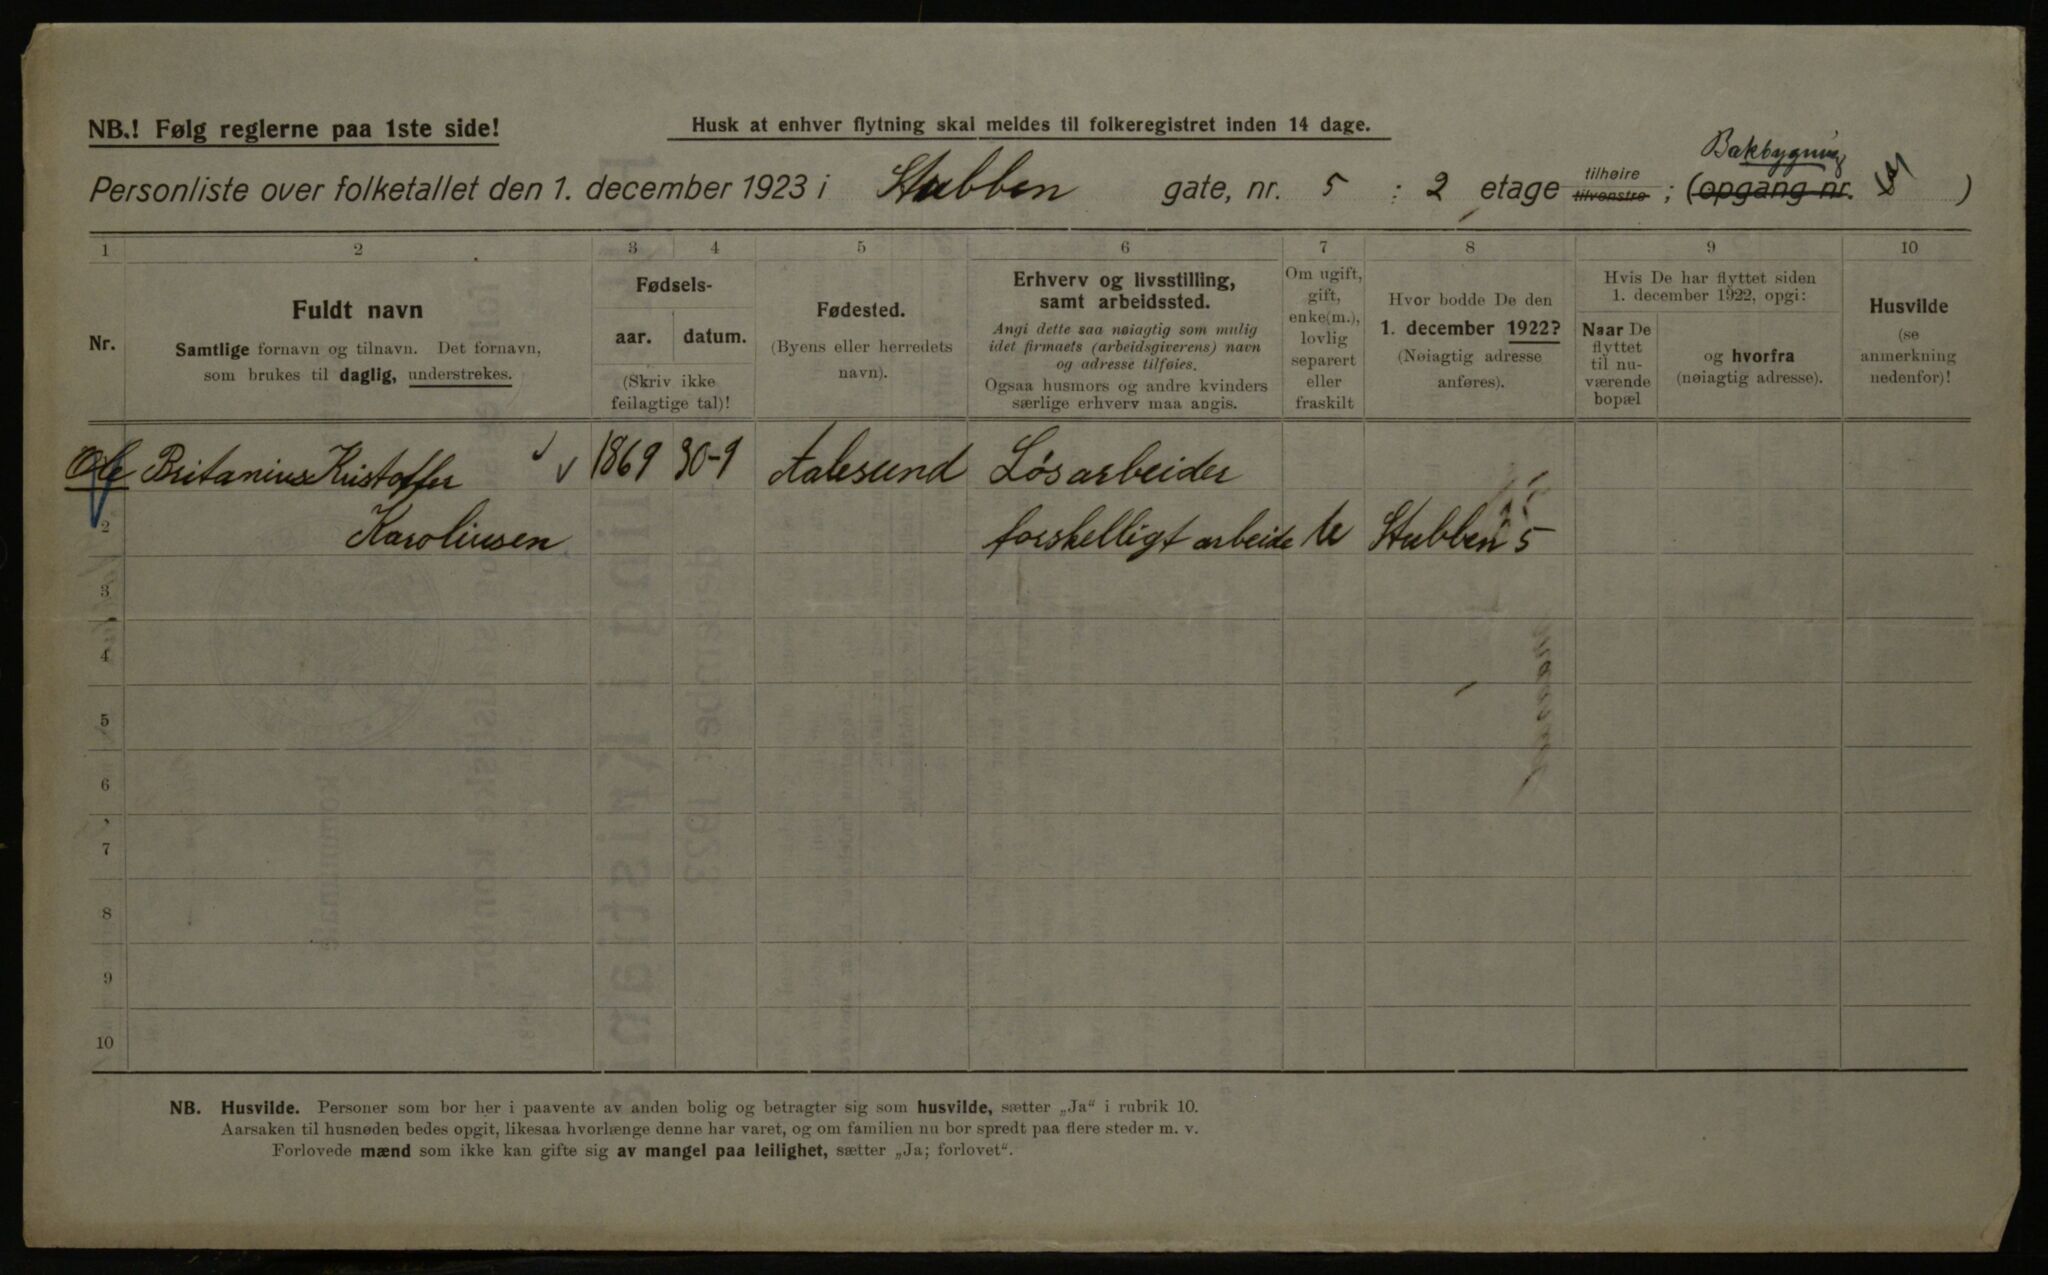 NB.! Følg reglerne paa 1ste side!
Husk at enhver flytning skal meldes til folkeregistret inden 14 dage.
Bakbygning
Personliste over folketallet den 1. december 1923 i Stubben gate, nr. 5 : 2 etage tilhøire tilvenstre ; (opgang nr. )
1 2 3 4 5 6 7 8 9 10
Nr.
Fuldt navn
Samtlige fornavn og tilnavn. Det fornavn,
som brukes til daglig, understrekes.
Fødsels-
aar. datum.
(Skriv ikke
feilagtige tal)!
Fødested.
(Byens eller herredets
navn).
Erhverv og livsstilling,
samt arbeidssted.
Angi dette saa nøiagtig som mulig
idet firmaets (arbeidsgiverens) navn
og adresse tilføies.
Ogsaa husmors og andre kvinders
særlige erhverv maa angis.
Om ugift,
gift,
enke(m.),
lovlig
separert
eller
fraskilt
Hvor bodde De den
1. december 1922?
(Nøiagtig adresse
anføres).
Hvis De har flyttet siden
1. december 1922, opgi:
Naar De
flyttet
til nu-
værende
bopæl
og hvorfra
(nøiagtig adresse).
Husvilde
(se
anmerkning
nedenfor)!
Ole Britanius Kristoffer 1869 30-9 Aalesund Løsarbeider
2 Karolinsen forskelligt arbeide Stubben 5
3
4
5
6
7
8
9
10
NB. Husvilde. Personer som bor her i paavente av anden bolig og betragter sig som husvilde, sætter „Ja“ i rubrik 10.
Aarsaken til husnøden bedes opgit, likesaa hvorlænge denne har varet, og om familien nu bor spredt paa flere steder m. v.
Forlovede mænd som ikke kan gifte sig av mangel paa leilighet, sætter „Ja; forlovet“.